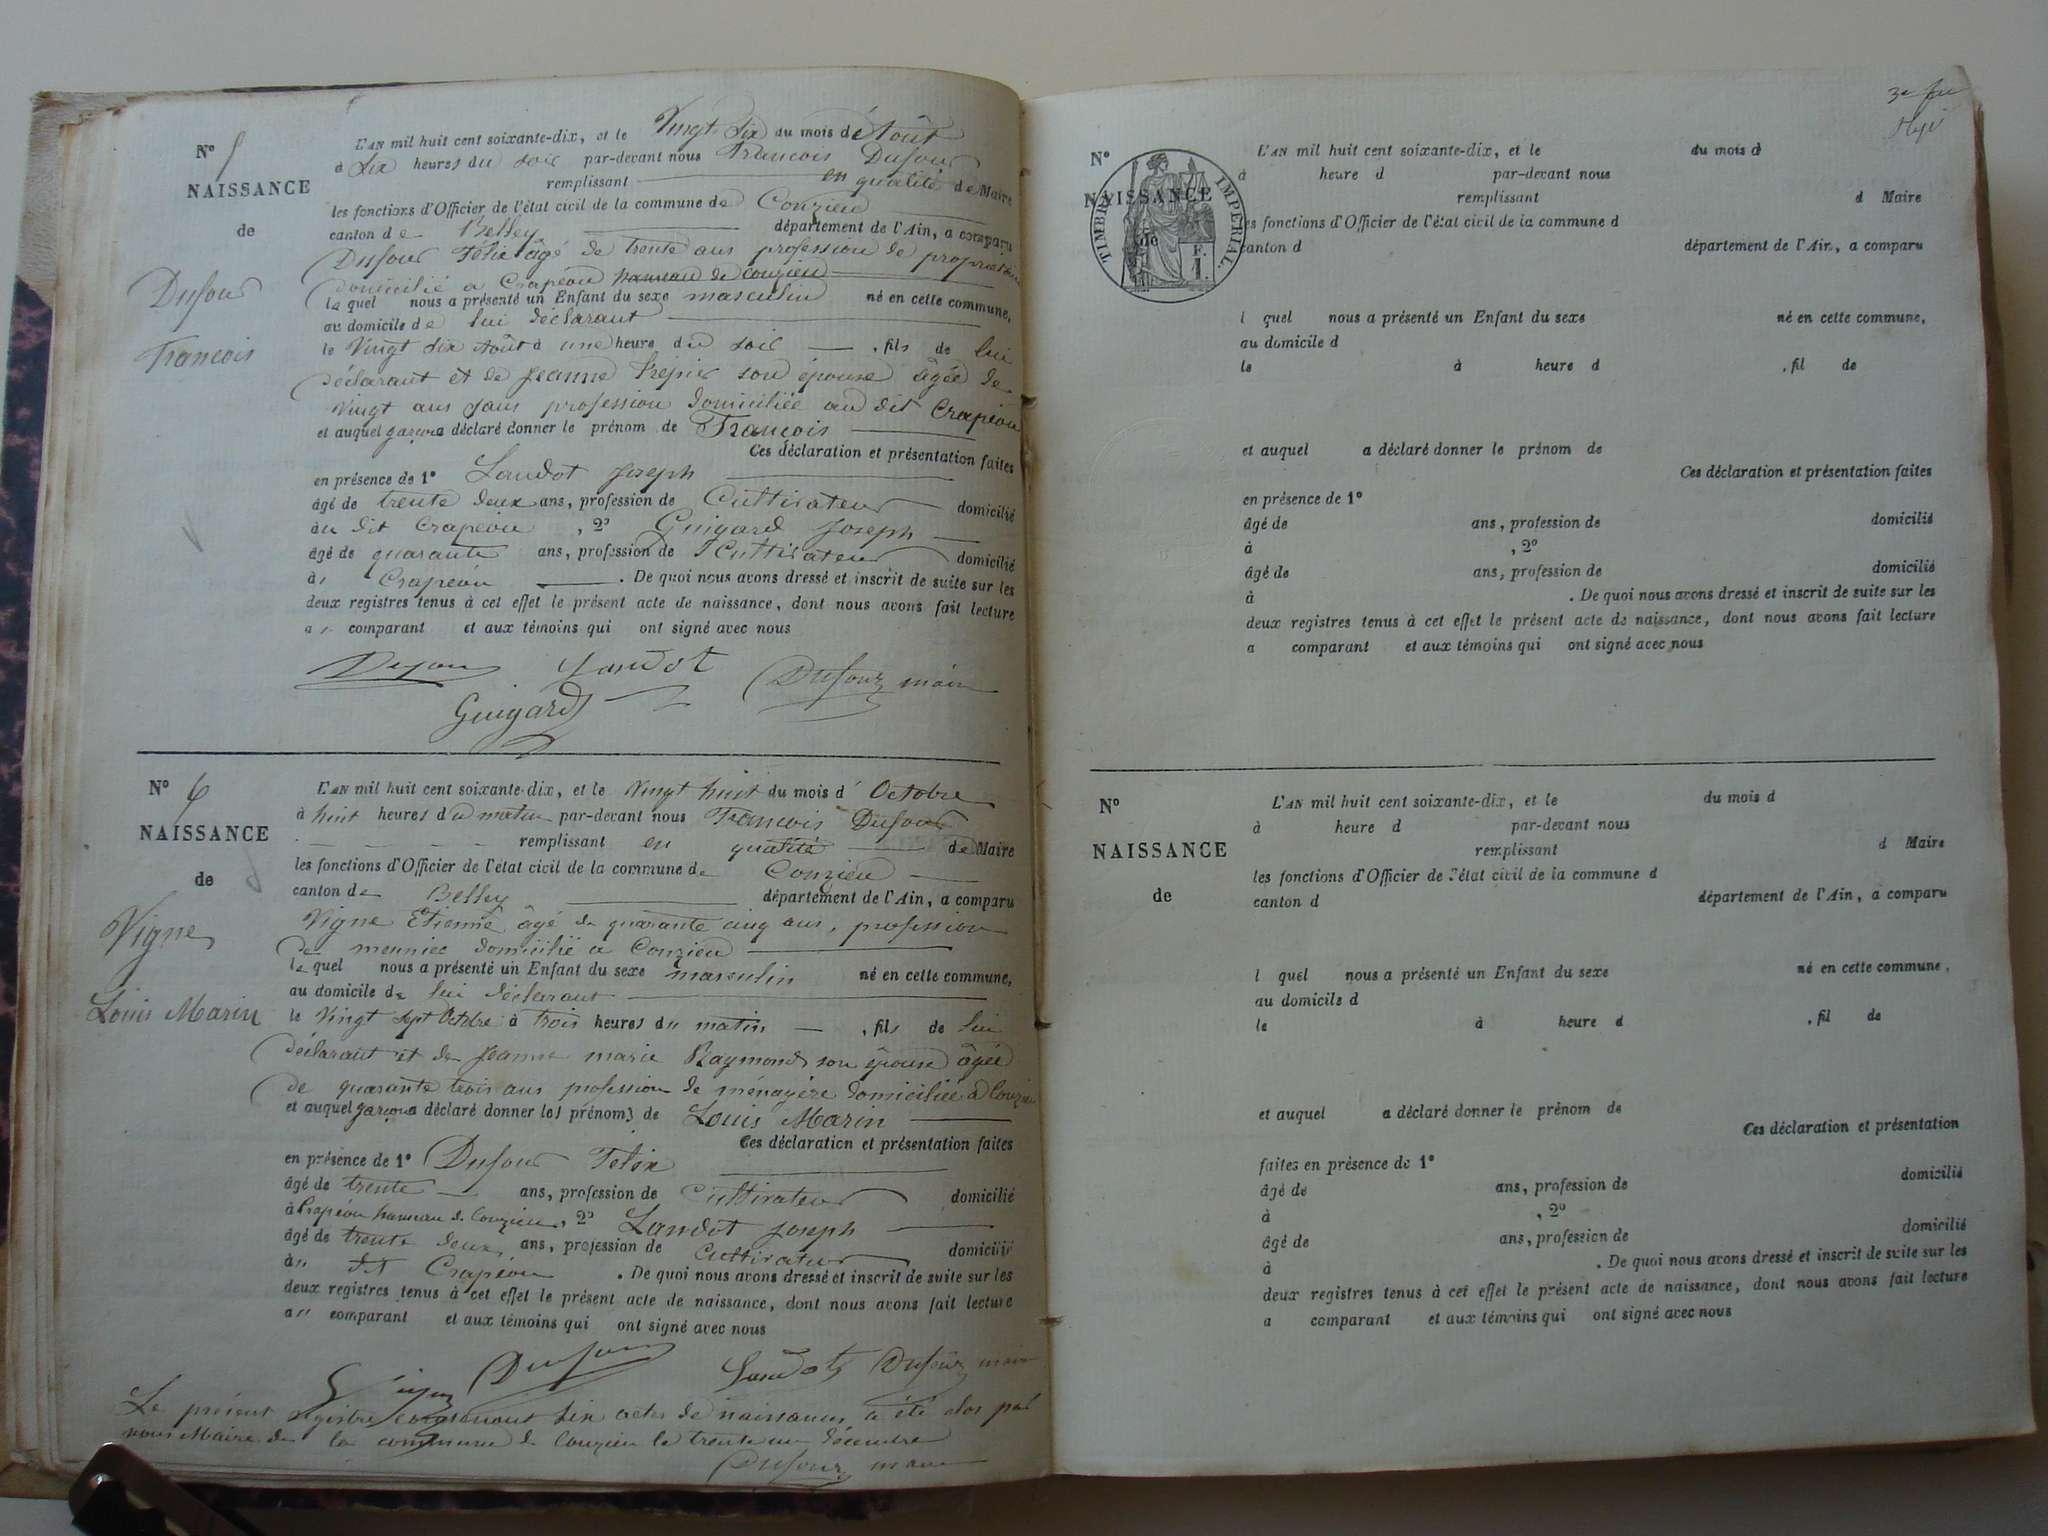 N° 5
NAISSANCE
de
Dufour
François
L'AN mil huit cent soixante-dix, et le Vingt Six du mois d'Août
à Six heures du soir par-devant nous François Dufour
remplissant en qualité de Maire
les fonctions d'Officier de l'état civil de la commune de Conzieu
canton de Belley département de l'Ain, a comparu
Dufour Félix âgé de trente ans profession de propriétaire
domicilié à Crapéou hameau de Conzieu
lequel nous a présenté un Enfant du sexe masculin né en cette commune,
au domicile de lui déclarant
le Vingt Six Août à une heure du soir , fils de lui
déclarant et de Jeanne son épouse âgée de
vingt ans sans profession domiciliée au dit Crapéou
et auquel garçon a déclaré donner le prénom de François
Ces déclaration et présentation faites
en présence de 1° Landot Joseph
âgé de trente deux ans, profession de Cultivateur domicilié
au dit Crapéou , 2° Guigard Joseph
âgé de quarante ans, profession de Cultivateur domicilié
à Crapéou . De quoi nous avons dressé et inscrit de suite sur les
deux registres tenus à cet effet le présent acte de naissance, dont nous avons fait lecture
au comparant et aux témoins qui ont signé avec nous
Dufour Landot Dufour maire
Guigard
N° 6
NAISSANCE
de
Vigne
Louis Marin
L'AN mil huit cent soixante-dix, et le Vingt huit du mois d'Octobre
à huit heures du matin par-devant nous François Dufour
remplissant en qualité de Maire
les fonctions d'Officier de l'état civil de la commune de Conzieu
canton de Belley département de l'Ain, a comparu
Vigne Etienne âgé de quarante cinq ans, profession
de meunier domicilié à Conzieu
lequel nous a présenté un Enfant du sexe masculin né en cette commune,
au domicile de lui déclarant
le Vingt sept Octobre à trois heures du matin , fils de lui
déclarant et de Jeanne marie Raymond son épouse âgée
de quarante trois ans profession de ménagère domiciliée à Conzieu
et auquel garçon a déclaré donner les prénoms de Louis Marin
Ces déclaration et présentation faites
en présence de 1° Dufour Félix
âgé de trente ans, profession de Cultivateur domicilié
à Crapéou hameau de Conzieu, 2° Landot Joseph
âgé de trente deux ans, profession de Cultivateur domicilié
au dit Crapéou . De quoi nous avons dressé et inscrit de suite sur les
deux registres tenus à cet effet le présent acte de naissance, dont nous avons fait lecture
au comparant et aux témoins qui ont signé avec nous
Dufour Landot Dufour maire
Le présent registre contenant six actes de naissances a été clos par
nous Maire de la commune de Conzieu le trente un décembre
Dufour maire
3e
TIMBRE IMPERIAL.
F.
1.
N°
NAISSANCE
de
L'AN mil huit cent soixante-dix, et le du mois d
à heure d par-devant nous
remplissant d Maire
les fonctions d'Officier de l'état civil de la commune d
canton d département de l'Ain, a comparu
l quel nous a présenté un Enfant du sexe né en cette commune,
au domicile d
le à heure d , fil de
et auquel a déclaré donner le prénom de
Ces déclaration et présentation faites
en présence de 1°
âgé de ans, profession de domicilié
à , 2°
âgé de ans, profession de domicilié
à . De quoi nous avons dressé et inscrit de suite sur les
deux registres tenus à cet effet le présent acte de naissance, dont nous avons fait lecture
a comparant et aux témoins qui ont signé avec nous
N°
NAISSANCE
de
L'AN mil huit cent soixante-dix, et le du mois d
à heure d par-devant nous
remplissant d Maire
les fonctions d'Officier de l'état civil de la commune d
canton d département de l'Ain, a comparu
l quel nous a présenté un Enfant du sexe né en cette commune,
au domicile d
le à heure d , fil de
et auquel a déclaré donner le prénom de
Ces déclaration et présentation
faites en présence de 1°
âgé de ans, profession de domicilié
à , 2°
âgé de ans, profession de domicilié
à . De quoi nous avons dressé et inscrit de suite sur les
deux registres tenus à cet effet le présent acte de naissance, dont nous avons fait lecture
a comparant et aux témoins qui ont signé avec nous